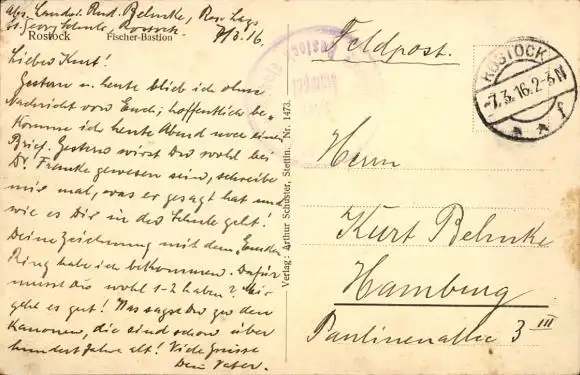 Abs. Landst. Rud. Behncke, Res. Laz.
St. Georg Schule, Rostock.
7/3.16.
Rostock Fischer-Bastion
Lieber Kurt!
Gestern u. heute blieb ich ohne
Nachricht von Euch; hoffentlich be-
komme ich heute Abend noch einen
Brief. Gestern wirst Du wohl bei
Dr. Franke gewesen sein, schreibe
mir mal, was er gesagt hat und
wie es Dir in der Schule geht!
Deine Zeichnung mit dem Emden
Ring habe ich bekommen. Dafür
musst Du wohl 1-2 haben? Mir
geht es gut! Was sagst Du zu den
Kanonen, die sind schon über
hundert Jahre alt! Viele Grüsse
Dein Vater.
Verlag: Arthur Schuster, Stettin. Nr. 1473.
Feldpost.
ROSTOCK
-7.3.16.2-3N
* * f
Herrn
Kurt Behncke
Hamburg
Paulinenallee 3 III